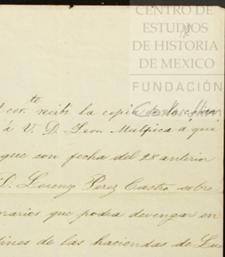 CENTRO DE
ESTUDIOS
DE HISTORIA
DE MEXICO
FUNDACIÓN
recibí la copia de la
á V. D. Leon Malpica á qu
que con fecha del 28 anterior
D. Lorenzo Perez Castro sobre
narios que podia devengar en
dines de las haciendas de Lu